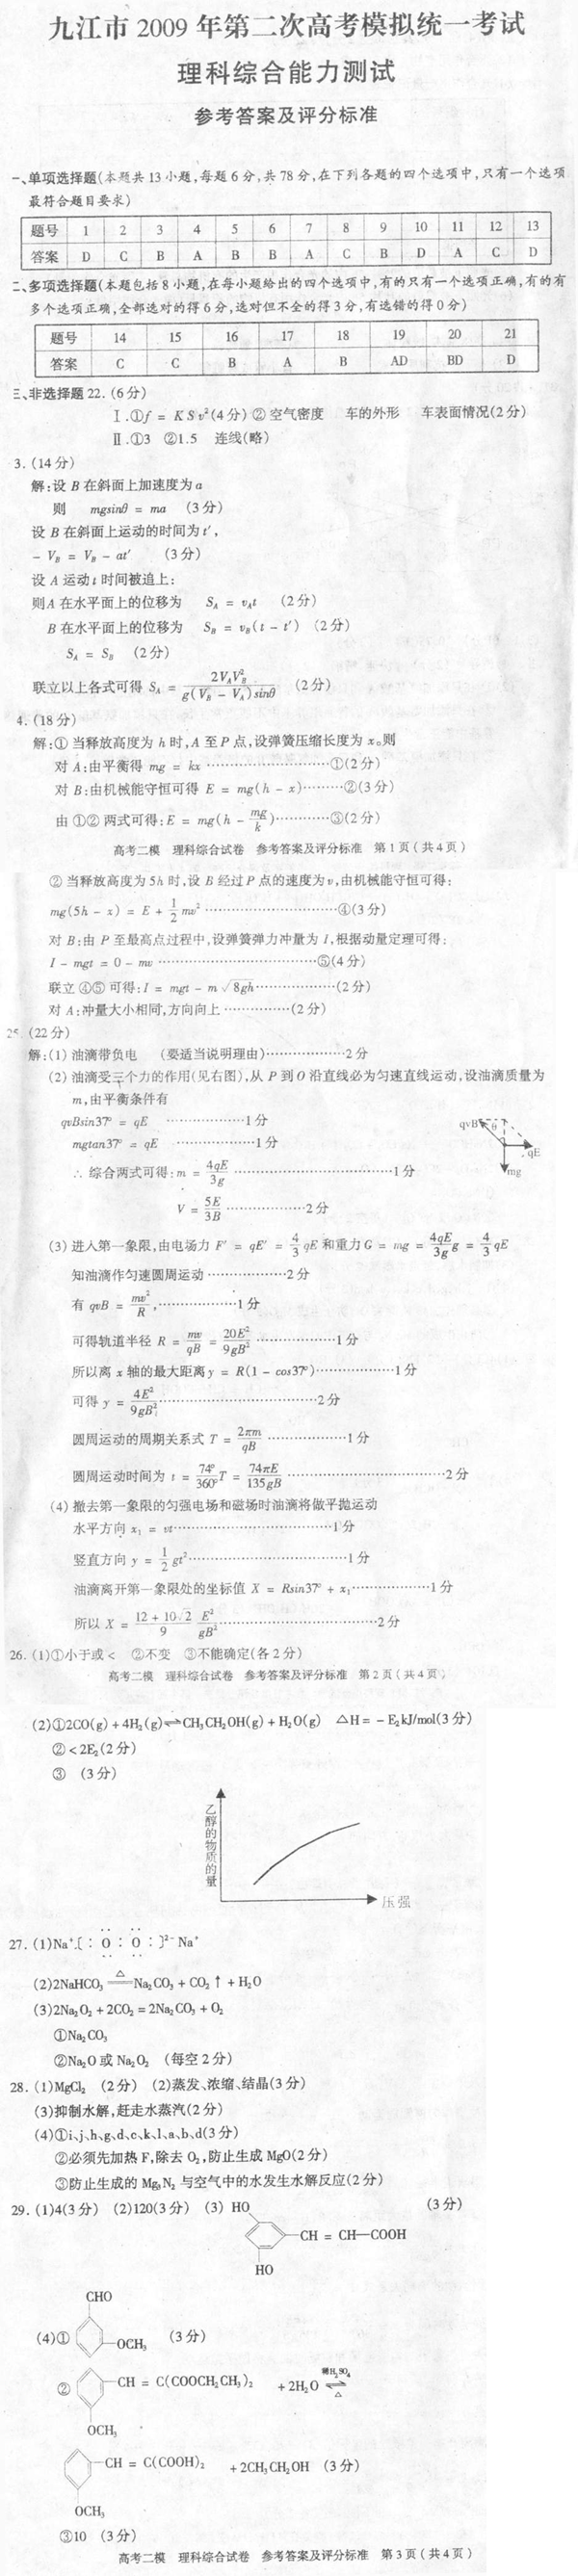 九江市2009年第二次高考模拟统一考试
理科综合能力测试
参考答案及评分标准
一、单项选择题(本题共13小题,每题6分,共78分,在下列各题的四个选项中,只有一个选项
最符合题目要求)
题号 1 2 3 4 5 6 7 8 9 10 11 12 13
答案 D C B A B B A C B D A C D
二、多项选择题(本题包括8小题,在每小题给出的四个选项中,有的只有一个选项正确,有的有
多个选项正确,全部选对的得6分,选对但不全的得3分,有选错的得0分)
题号 14 15 16 17 18 19 20 21
答案 C C B A B AD BD D
三、非选择题22.(6分)
Ⅰ.①f = KSv²(4分) ②空气密度 车的外形 车表面情况(2分)
Ⅱ.①3 ②1.5 连线(略)
3.(14分)
解:设B在斜面上加速度为a
则 mgsinθ = ma (3分)
设B在斜面上运动的时间为t′,
- V_B = V_B - at′ (3分)
设A运动t时间被追上:
则A在水平面上的位移为 S_A = v_A t (2分)
B在水平面上的位移为 S_B = v_B(t - t′) (2分)
S_A = S_B (2分)
联立以上各式可得 S_A = 2V_A V_B² / g(V_B - V_A)sinθ (2分)
4.(18分)
解:①当释放高度为h时,A至P点,设弹簧压缩长度为x。则
对A:由平衡得 mg = kx ……………………①(2分)
对B:由机械能守恒可得 E = mg(h - x)………②(3分)
由①②两式可得:E = mg(h - mg/k)…………③(2分)
高考二模 理科综合试卷 参考答案及评分标准 第1页(共4页)
②当释放高度为5h时,设B经过P点的速度为v,由机械能守恒可得:
mg(5h - x) = E + 1/2 mv² ……………………④(3分)
对B:由P至最高点过程中,设弹簧弹力冲量为I,根据动量定理可得:
I - mgt = 0 - mv ……………………⑤(4分)
联立④⑤可得:I = mgt - m√8gh……………(2分)
对A:冲量大小相同,方向向上……………(2分)
25.(22分)
解:(1)油滴带负电 (要适当说明理由)………………2分
(2)油滴受三个力的作用(见右图),从P到O沿直线必为匀速直线运动,设油滴质量为
m,由平衡条件有
qvBsin37° = qE ………………1分
mgtan37° = qE ………………1分
qvB θ qE mg
∴ 综合两式可得:m = 4qE/3g ……………………1分
V = 5E/3B ………………2分
(3)进入第一象限,由电场力 F′ = qE′ = 4/3 qE 和重力 G = mg = 4qE/3g g = 4/3 qE
知油滴作匀速圆周运动………………2分
有 qvB = mv²/R ,………………1分
可得轨道半径 R = mv/qB = 20E²/9gB² ………………1分
所以离x轴的最大距离 y = R(1 - cos37°)………………1分
可得 y = 4E²/9gB² ……………………2分
圆周运动的周期关系式 T = 2πm/qB ………………1分
圆周运动时间为 t = 74°/360° T = 74πE/135gB ……………………2分
(4)撤去第一象限的匀强电场和磁场时油滴将做平抛运动
水平方向 x₁ = vt……………………1分
竖直方向 y = 1/2 gt²……………………1分
油滴离开第一象限处的坐标值 X = Rsin37° + x₁………………1分
所以 X = 12 + 10√2 / 9 E²/gB² ……………………2分
26.(1)①小于或< ②不变 ③不能确定(各2分)
高考二模 理科综合试卷 参考答案及评分标准 第2页(共4页)
(2)①2CO(g) + 4H₂(g)⇌CH₃CH₂OH(g) + H₂O(g) △H = - E₂kJ/mol(3分)
②<2E₂(2分)
③ (3分)
乙醇的物质的量
压强
27.(1)Na⁺[:O:O:]²⁻Na⁺
(2)2NaHCO₃ =△= Na₂CO₃ + CO₂↑ + H₂O
(3)2Na₂O₂ + 2CO₂ = 2Na₂CO₃ + O₂
①Na₂CO₃
②Na₂O或Na₂O₂ (每空2分)
28.(1)MgCl₂ (2分) (2)蒸发、浓缩、结晶(3分)
(3)抑制水解,赶走水蒸汽(2分)
(4)①i、j、h、g、d、c、k、l、a、b、d(3分)
②必须先加热F,除去O₂,防止生成MgO(2分)
③防止生成的Mg₃N₂与空气中的水发生水解反应(2分)
29.(1)4(3分) (2)120(3分) (3) HO (3分)
CH = CH—COOH
HO
CHO
(4)① OCH₃ (3分)
② CH = C(COOCH₂CH₃)₂ + 2H₂O 稀H₂SO₄ ⇌ △
OCH₃
CH = C(COOH)₂ + 2CH₃CH₂OH (3分)
OCH₃
③10 (3分)
高考二模 理科综合试卷 参考答案及评分标准 第3页(共4页)